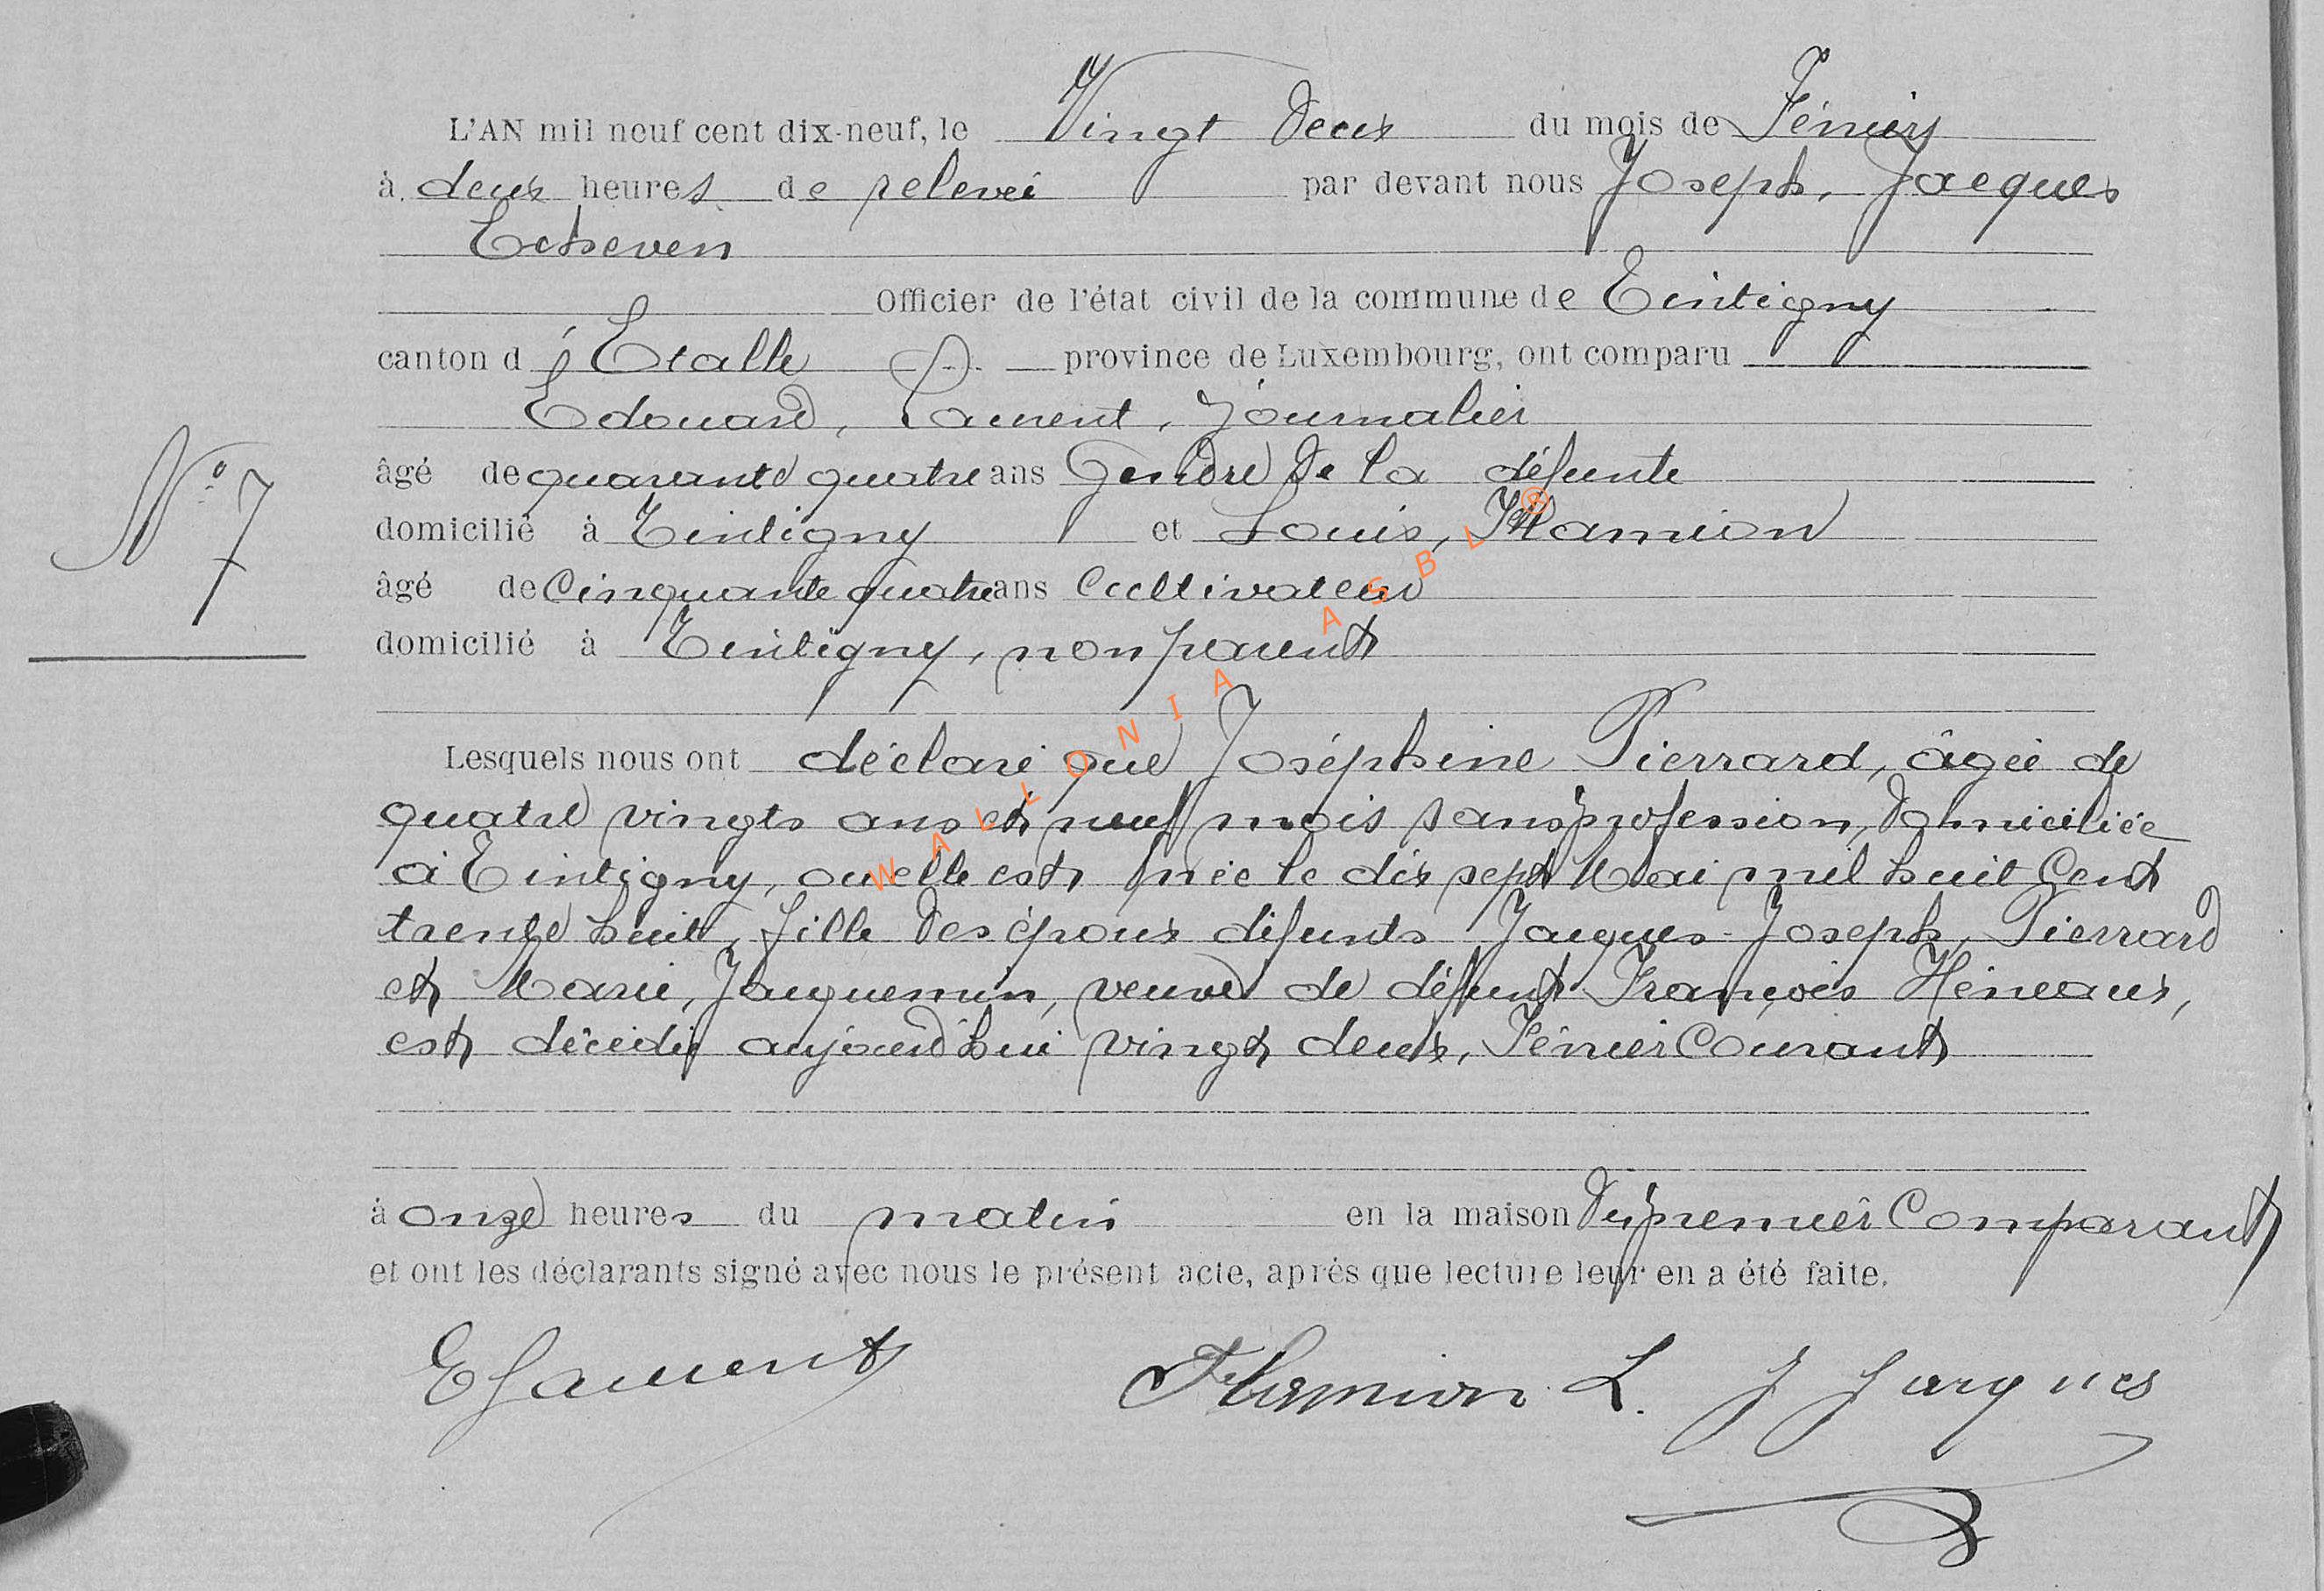 L'AN mil neuf cent dix-neuf, le Vingt deux du mois de Février
à deux heures de relevée par devant nous Joseph, Jacques
Echevin
Officier de l'état civil de la commune de Tintigny
canton d'Etalle province de Luxembourg, ont comparu
Edouard, Laurent, Journalier
âgé de quarante quatre ans Gendre de la défunte
N° 7
domicilié à Tintigny et Louis, Flamion
âgé de Cinquante quatre ans Cultivateur
domicilié à Tintigny, non parent
Lesquels nous ont déclaré que Joséphine Pierrard, âgée de
quatre vingts ans et neuf mois sans profession, domiciliée
à Tintigny, où elle est née le dix sept Mai mil huit Cent
trente huit, fille des époux défunts Jacques-Joseph, Pierrard
et Marie, Jacquemin, veuve de défunt François Héneaux,
est décédée aujourd'hui vingt deux, Février Courant
à onze heures du matin en la maison du premier Comparant
et ont les déclarants signé avec nous le présent acte, après que lecture leur en a été faite.
E Laurent Flamion L. J Jacques
WALLONIA ASBL ®